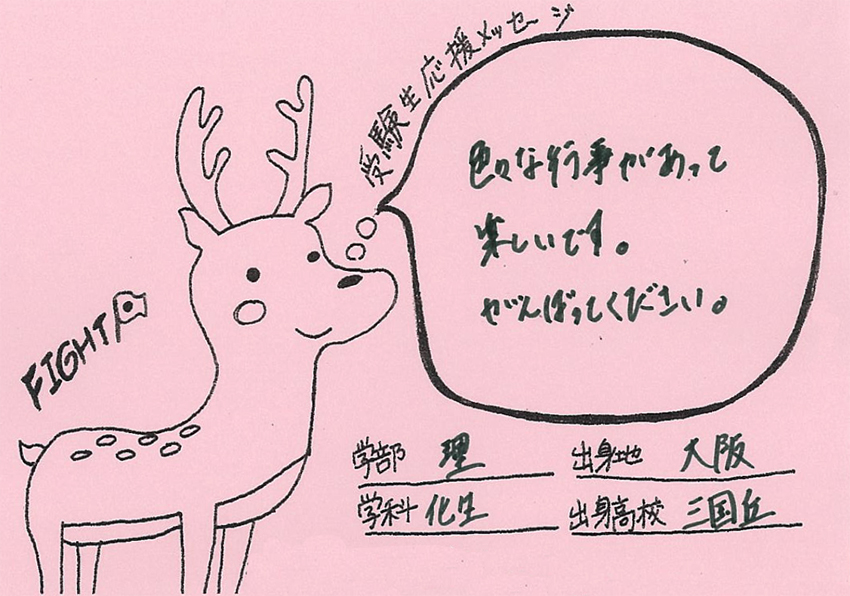 受験生応援メッセージ
色々な行事があって
楽しいです。
がんばってください。
FIGHT
学部 理
出身地 大阪
学科 化生
出身高校 三国丘